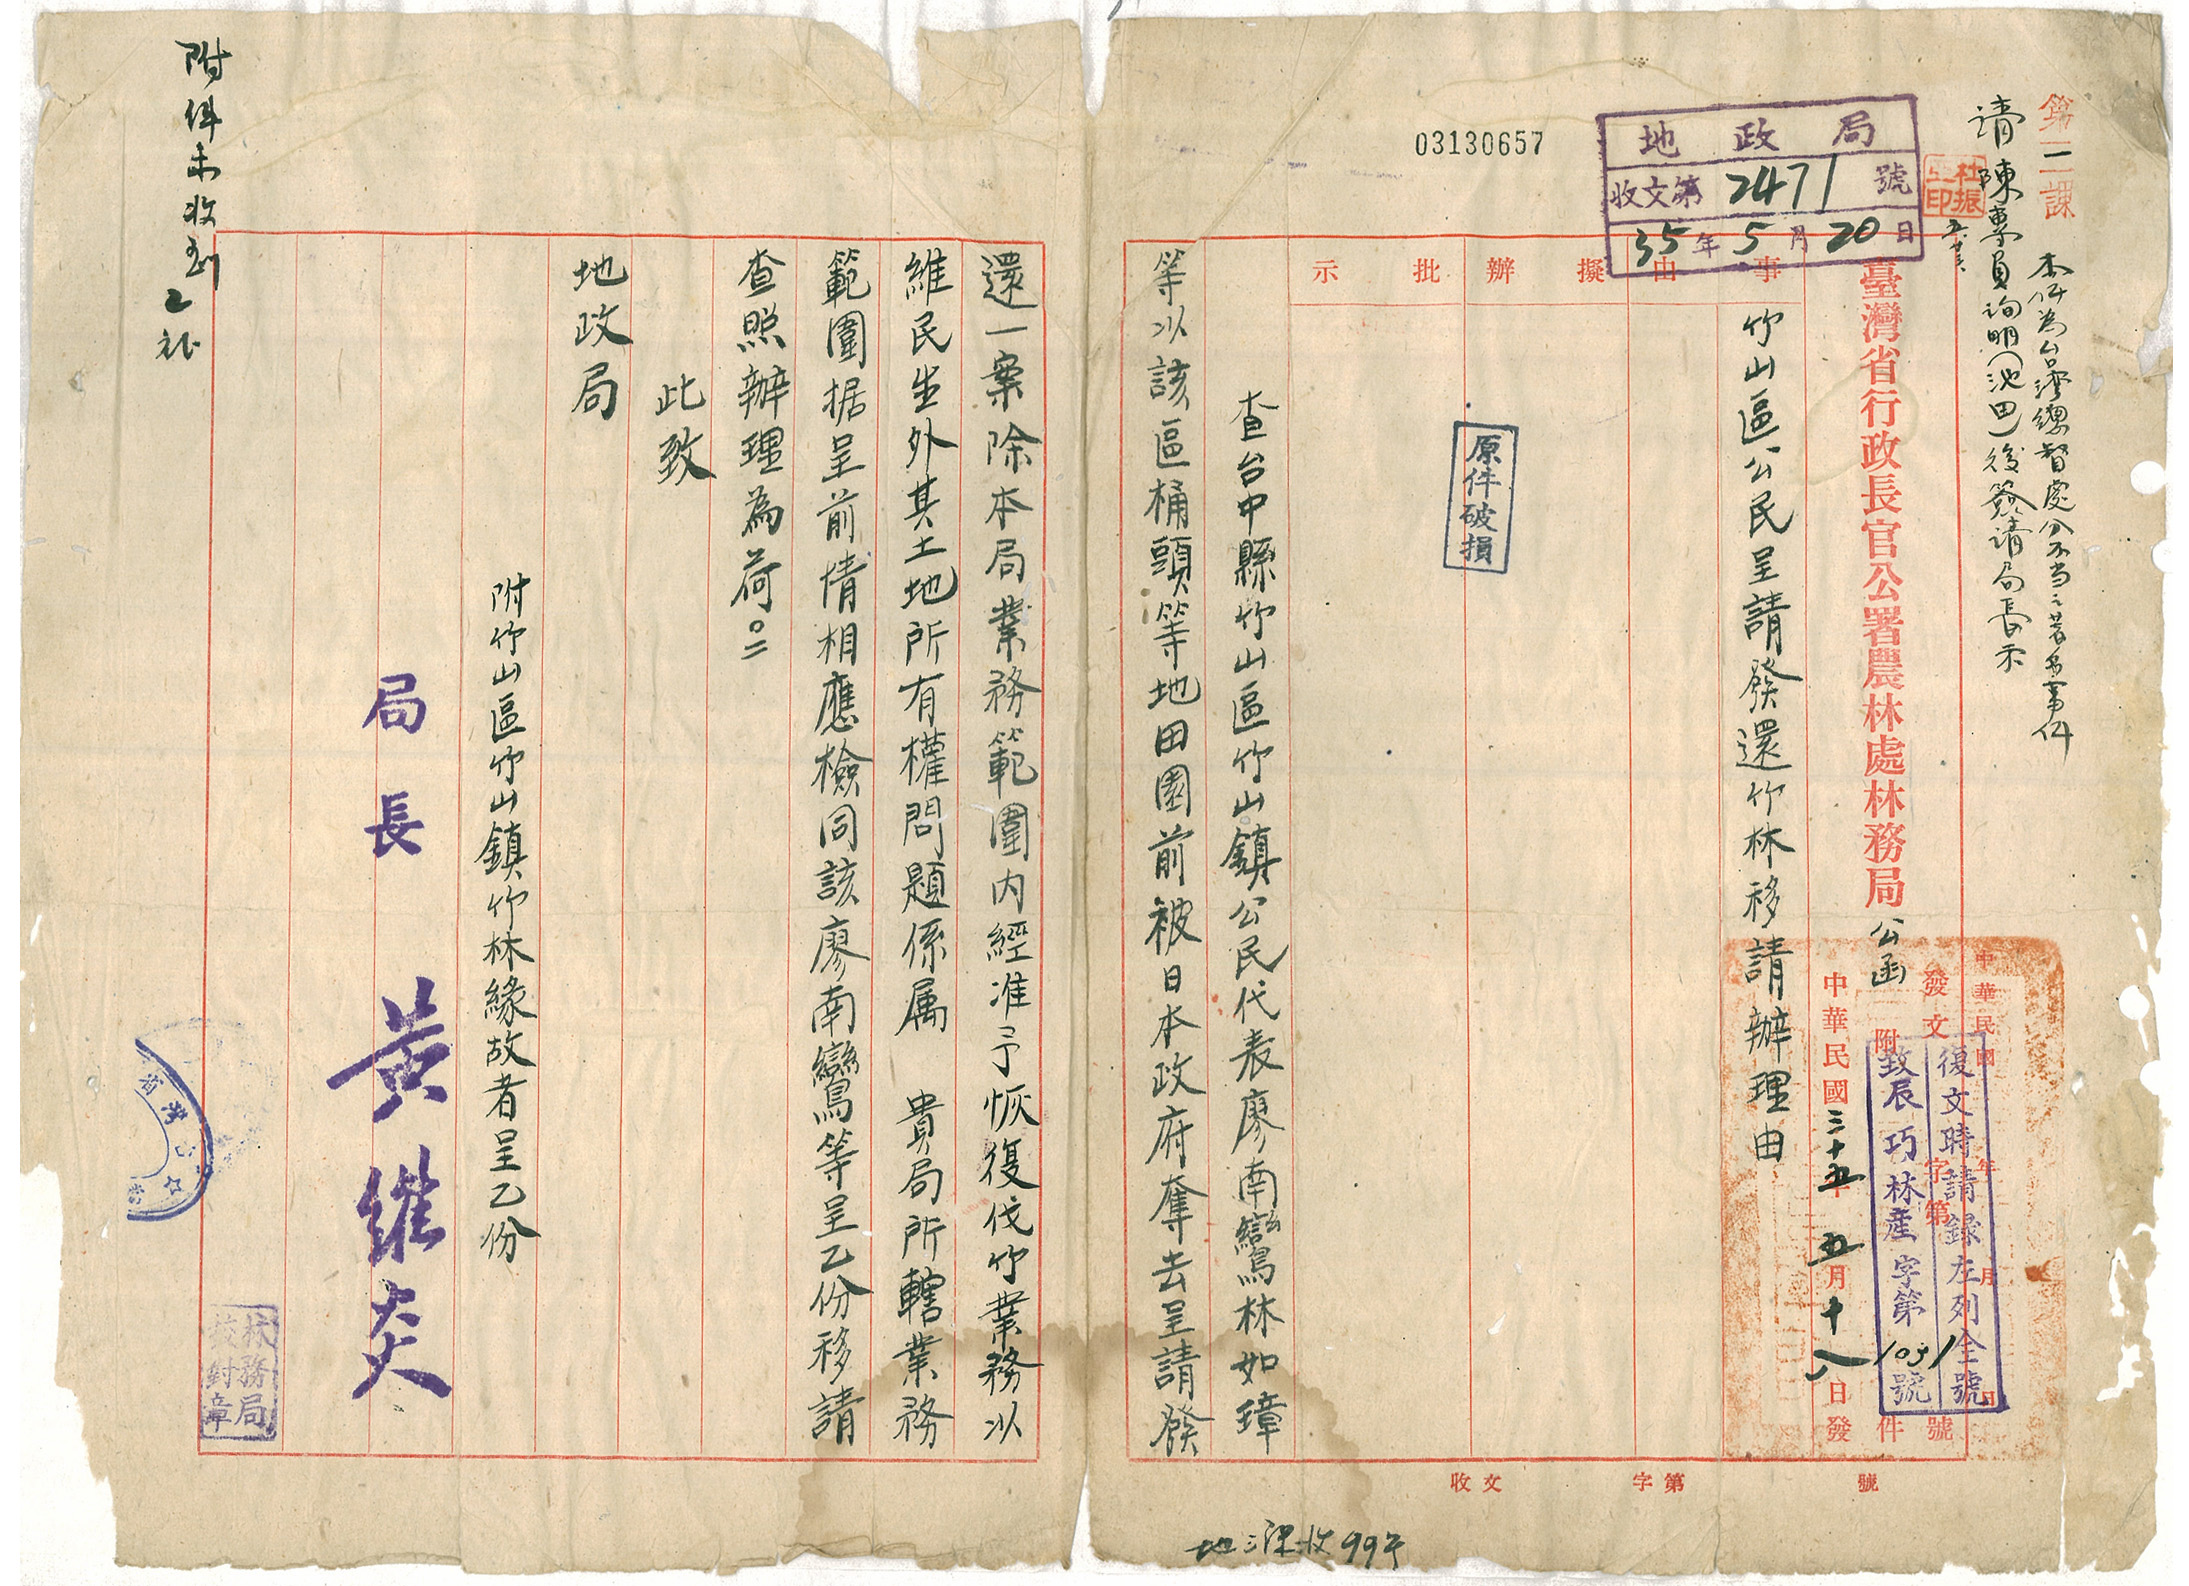 03130657
地政局
收文第2471號
35年5月20日
第二課
本件為台灣總督處分不当之著名事件
請陳專員詢明(池田)後簽請局長示
杜振印
臺灣省行政長官公署農林處林務局公函
中華民國 年 月 日
發文 字第 號
附 件
復文時請録左列全號
致辰巧林産字第1031號
中華民國三十五年五月十八日發
事由
擬辦
批示
竹山區公民呈請發還竹林移請辦理由
原件破損
查台中縣竹山區竹山鎮公民代表廖南鸞林如璋
等以該區桶頭等地田園前被日本政府奪去呈請發
還一案除本局業務範圍内經准予恢復伐竹業務以
維民生外其土地所有權問題係属 貴局所轄業務
範圍据呈前情相應檢同該廖南鸞等呈乙份移請
查照辦理為荷。
此致
地政局
附竹山區竹山鎮竹林緣故者呈乙份
局長 黃維炎
林務局校對章
附件未收到
收文 字第 號
地三課收997